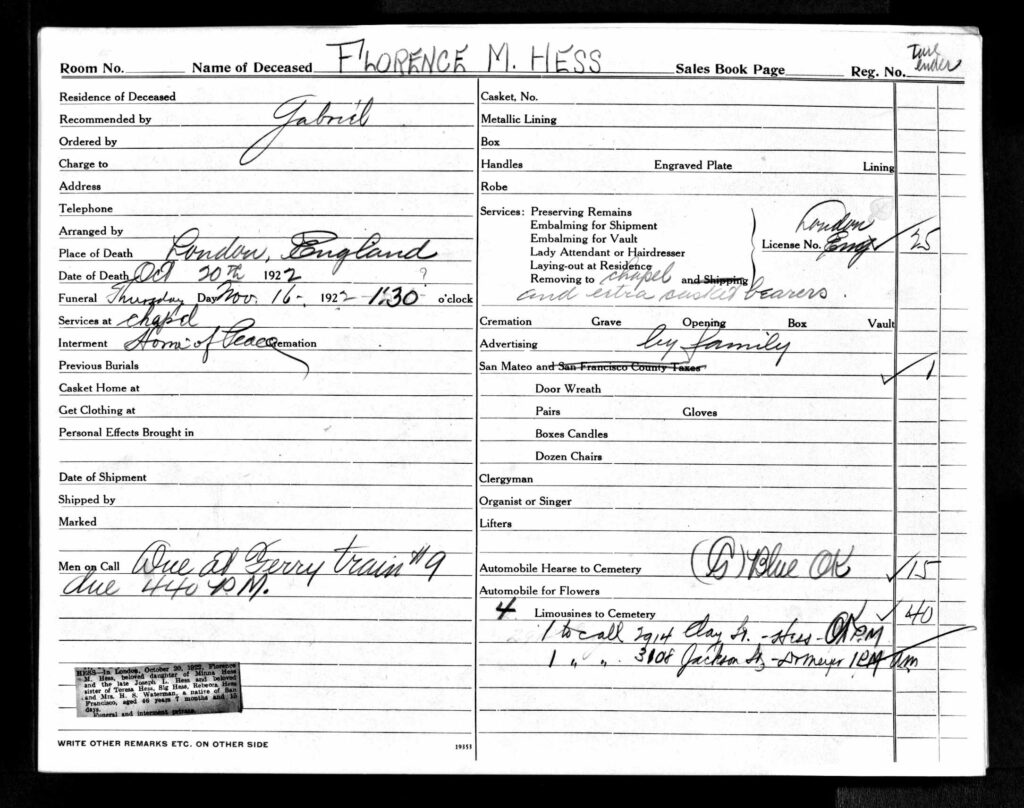 Room No. Name of Deceased FLORENCE M. HESS Sales Book Page Reg. No.
Residence of Deceased
Recommended by Gabriel
Ordered by
Charge to
Address
Telephone
Arranged by
Place of Death London, England
Date of Death Oct 20th 1922 ?
Funeral Thursday Day Nov. 16- 1922 - 1:30 o'clock
Services at chapel
Interment Home of Peace Cremation
Previous Burials
Casket Home at
Get Clothing at
Personal Effects Brought in
Date of Shipment
Shipped by
Marked
Men on Call Due at Ferry train #9
due 4 40 P.M.
HESS—In London, October 20, 1922, Florence
M. Hess, beloved daughter of Minna Hess
and the late Joseph L. Hess and beloved
sister of Teresa Hess, Sig Hess, Rebecca Hess
and Mrs. H. S. Waterman, a native of San
Francisco, aged 46 years 7 months and 15
days.
Funeral and interment private.
WRITE OTHER REMARKS ETC. ON OTHER SIDE 19353
Casket, No.
Metallic Lining
Box
Handles Engraved Plate Lining
Robe
Services: Preserving Remains
Embalming for Shipment
Embalming for Vault
Lady Attendant or Hairdresser
Laying-out at Residence
License No. London Eng. 25
Removing to chapel and Shipping
and extra casket bearers.
Cremation Grave Opening Box Vault
Advertising by family
San Mateo and San Francisco County Taxes 1
Door Wreath
Pairs Gloves
Boxes Candles
Dozen Chairs
Clergyman
Organist or Singer
Lifters
Automobile Hearse to Cemetery (G) Blue OK 15
Automobile for Flowers
4 Limousines to Cemetery 40
1 to call 2914 Clay St. - Hess - OK P.M
1 " " 3108 Jackson St - Dr Meyer 1 P.M